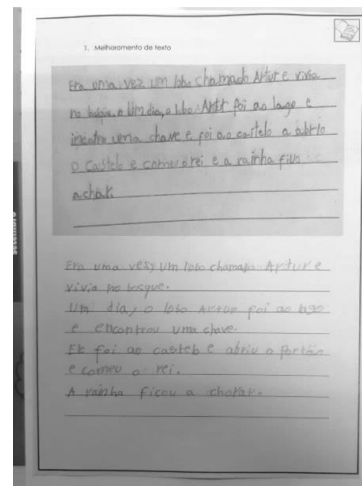 1. Melhoramento de texto
Era uma vez um lobo chamado Artur e vivia
no e Um dia, o lobo Artur foi ao lago e
uma chave e foi ao castelo a abrio
o castelo e comeu o rei e a rainha
a chorar
Era uma vez, um lobo chamado Artur e
vivia no bosque.
Um dia, o lobo Artur foi ao lago
e encontrou uma chave.
Ele foi ao castelo e abriu o portão
e comeu o rei.
A rainha ficou a chorar.